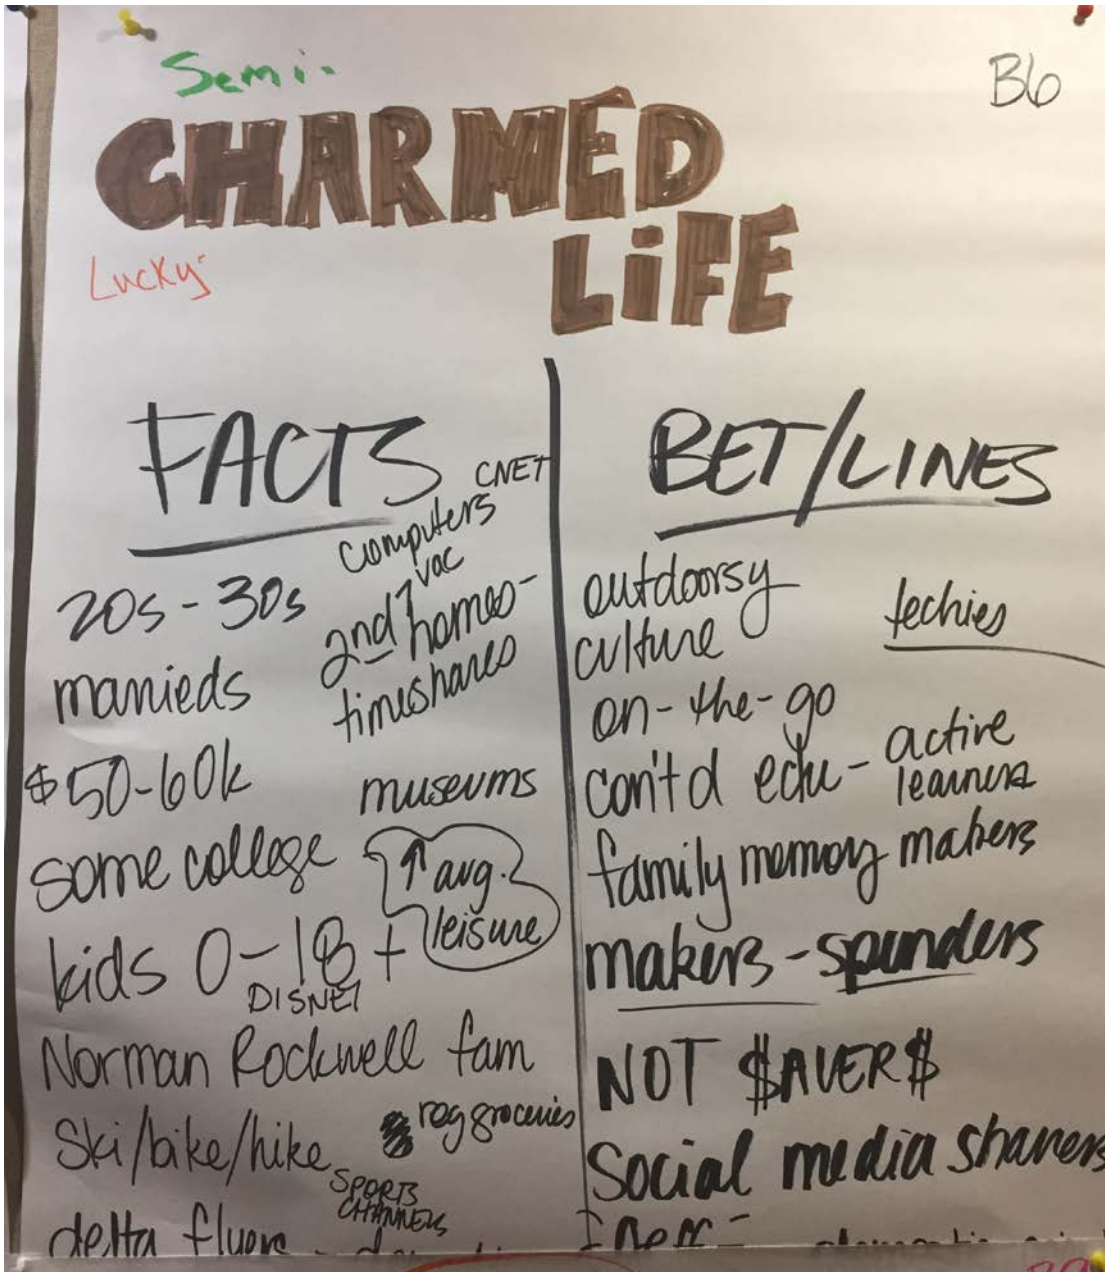 Semi-
B6
CHARMED
LiFE
Lucky-
FACTS
CNET
computers
20s - 30s
vac
2nd homes -
timeshares
marrieds
$50-60k
museums
some college
↑ avg.
leisure
kids 0-18 +
DISNEY
Norman Rockwell fam
Ski/bike/hike
reg groceries
SPORTS
CHANNELS
delta flyers -
BET/LINES
outdoorsy
techies
culture
on-the-go
con't d edu - active
learners
family memory makers
makers - spenders
NOT $AVER$
Social media sharers